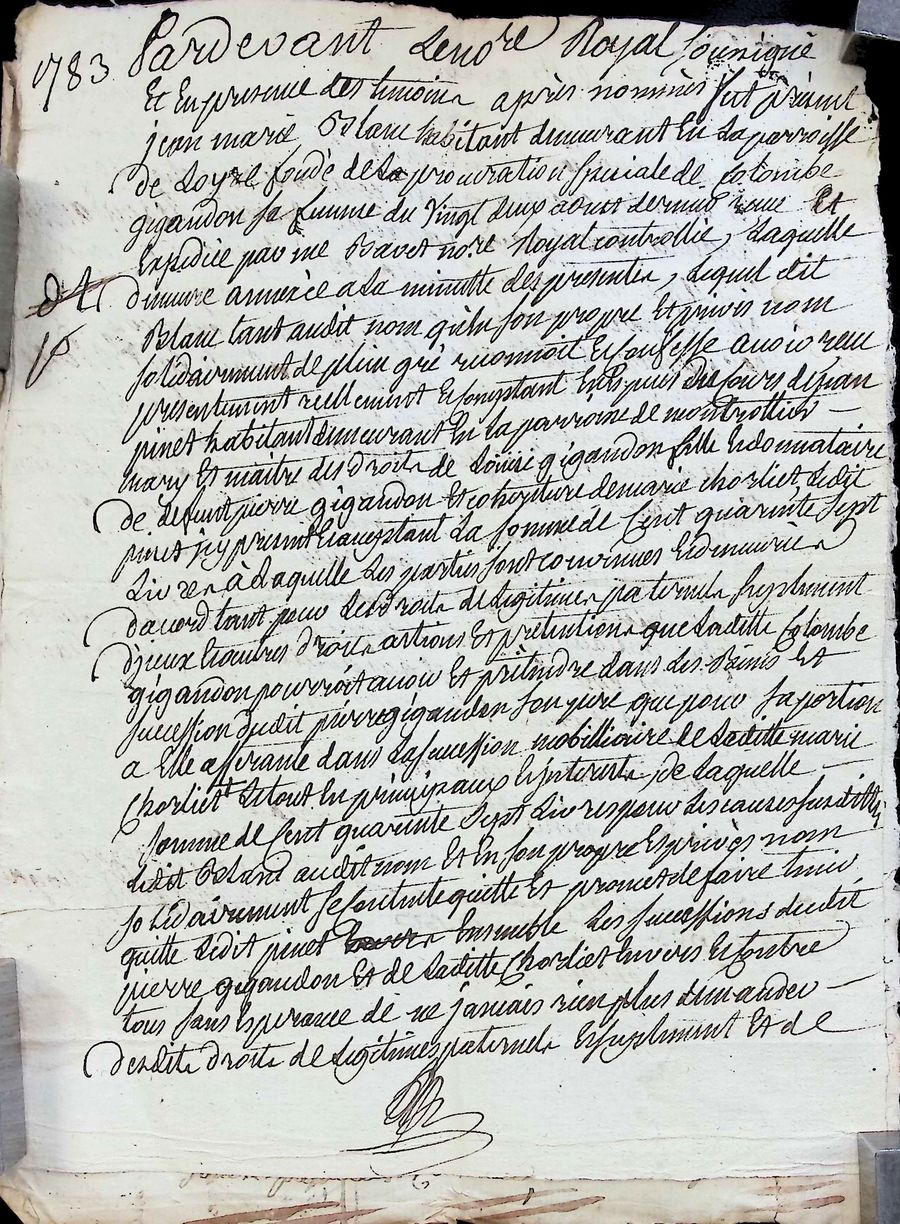 1783 Pardevant Le no.re Royal soussigné
Et En presence des temoins après nommés fut présent
jean marie Blanc habitant demeurant En La parroisse
de Loyre fondé de La procuration speciale de Colombe
gigandon sa femme du Vingt deux aoust dernier reçue Et
Expediée par me Bavet no.re Royal controllée, Laquelle
demeure annexée a La minutte des presentes, Lequel dit
Blanc tant audit nom qu'en son propre Et privés nom
solidairement de plein gré reconnoit Et confesse avoir recu
presentement reellement Et comptant En Especes de cours de jean
pinet habitant demeurant En La parroisse de montrottier
mary Et maitre des droits de Loüise gigandon fille Et donnataire
de defunt pierre gigandon Et cohoritiere de marie chorliet, Ledit
pinet icy present Et acceptant La somme de Cent quarante Sept
Livres à Laquelle Les parties sont convenues Et demeurées
d'acord tant pour Les droits de Legitimes paternels supplement
d'jceux Et autres droits actions Et prétentions que Laditte Colombe
gigandon pourroit avoir Et prétendre dans Les Biens Et
succession dudit pierre gigandon son pere que pour sa portion
a Elle afferante dans La succession mobilliaire de Laditte marie
Chorliet Le tout En principaux Et interets, de Laquelle
somme de Cent quarante Sept Livres pour Les causes susdittes
Ledit Blanc audit nom Et En son propre Et privés nom
solidairement se contente quitte Et promet de faire tenir
quitte Ledit pinet Ensemble Les successions dudit
pierre gigandon Et de Laditte Chorliet Envers Et Contre
tous sans Esperance de ne jamais rien plus demander
desdits droits de Legitimes paternels Et supplement Et de